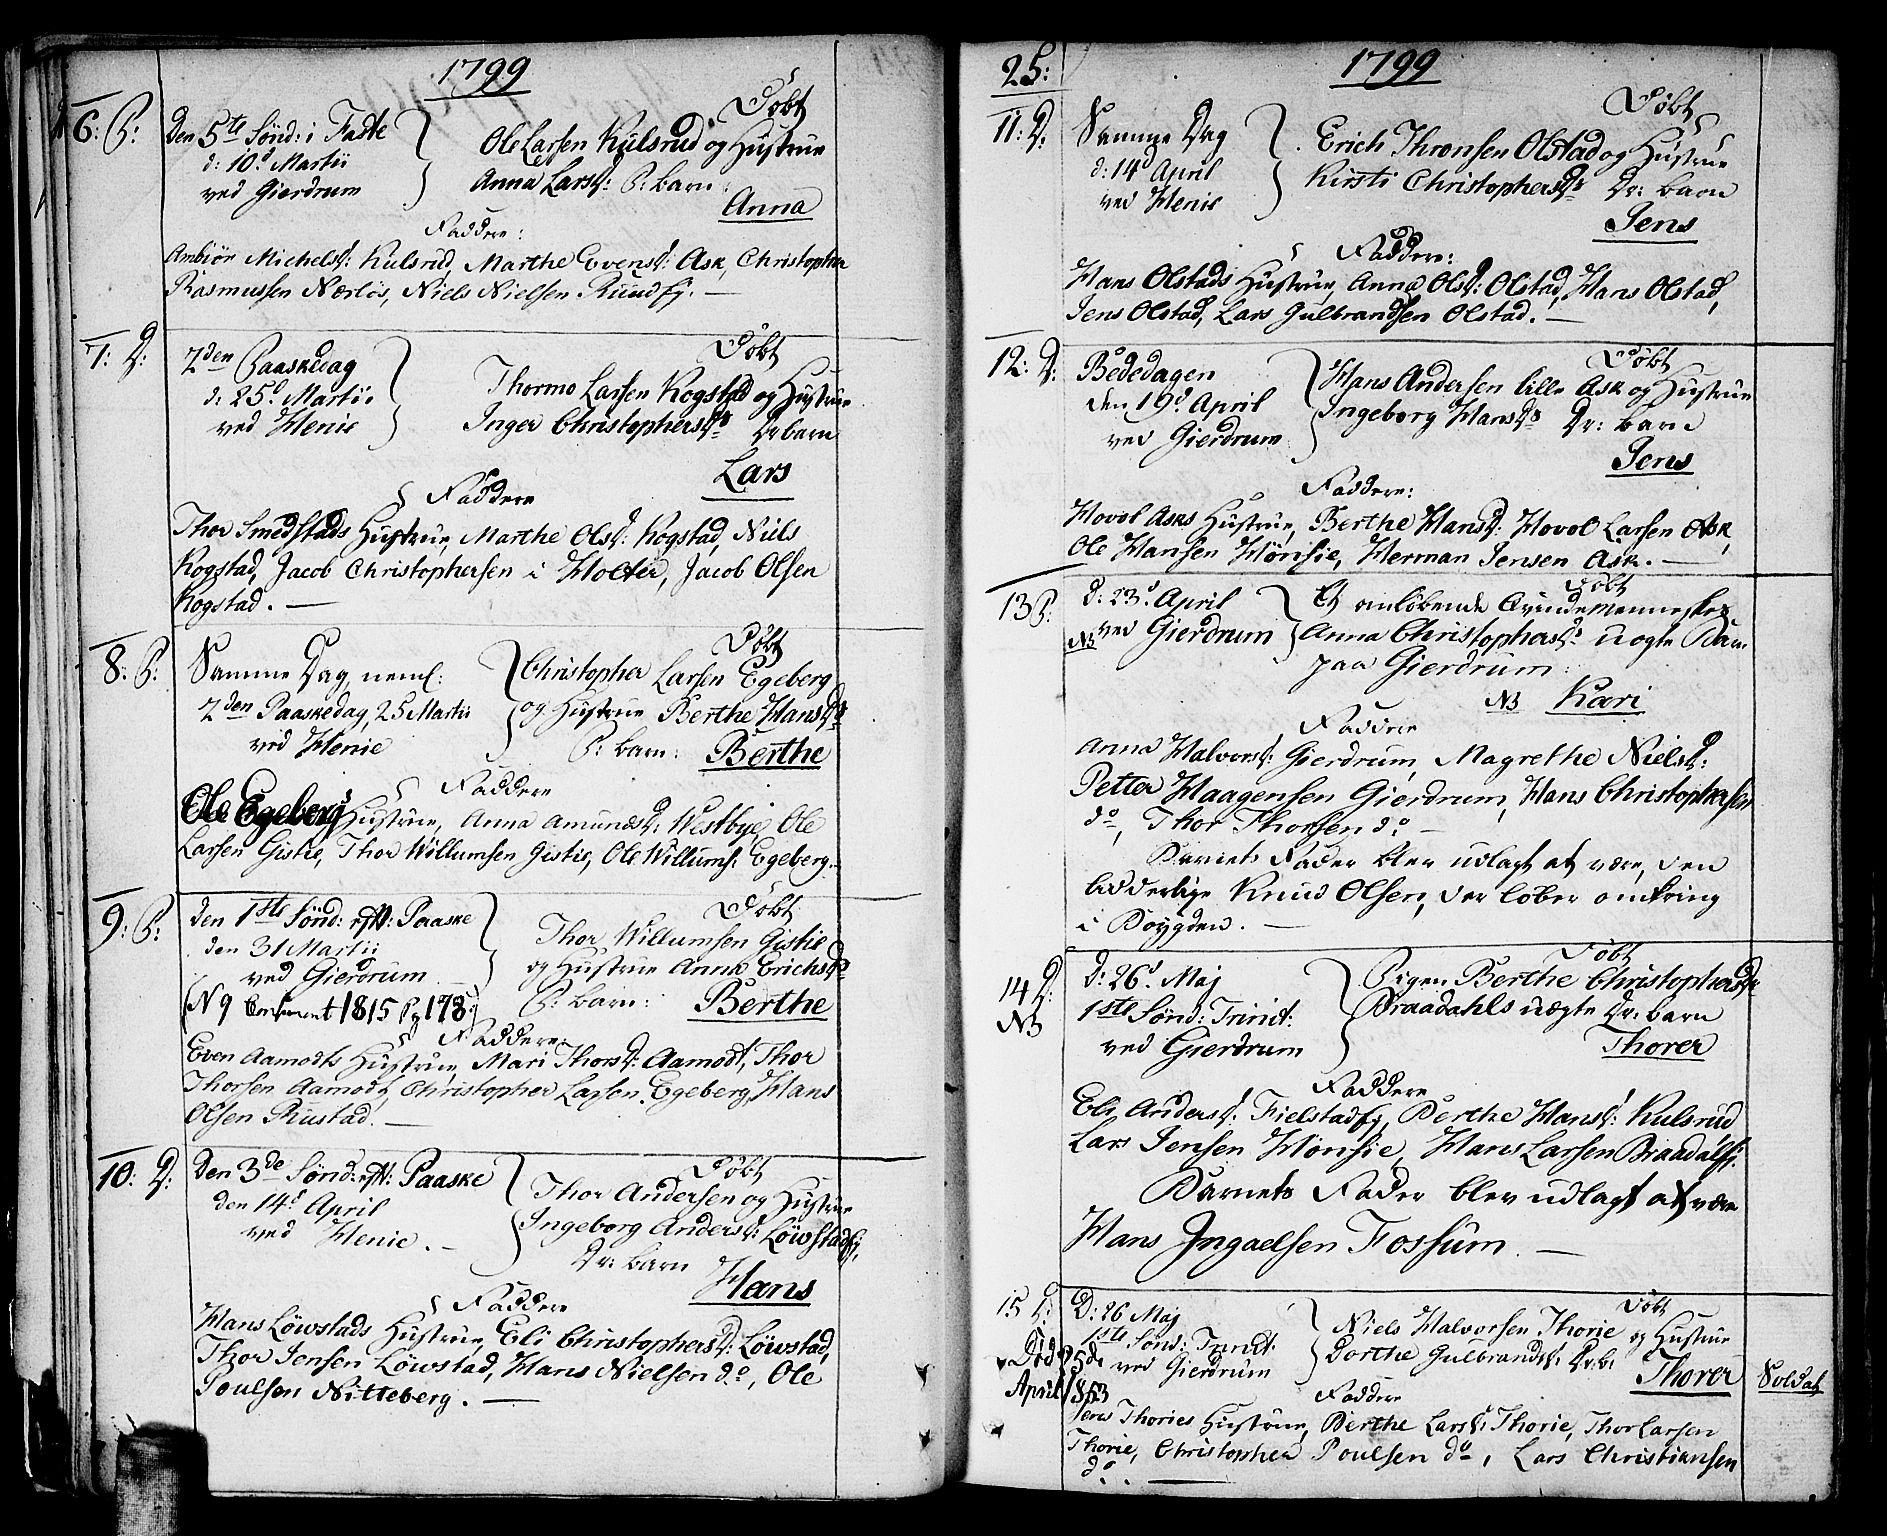 1799
6: P:
Døbt
Den 5te Sønd: i Faste
d: 10d Martii
ved Gierdrum
Ole Larsen Kulsrud og Hustrue
Anna Larsd: P: barn:
Anna
Faddere:
Ambiør Michelsd: Kulsrud, Marthe Evensd: Ask, Christopher
Rasmussen Nærløs, Niels Nielsen Ruudfj. —
7: D:
Døbt
2den Paaskedag
d: 25d Martii
ved Henie
Thormo Larsen Kogstad og Hustrue
Inger Christophersdr Dr barn
Lars
Faddere
Thor Smedstads Hustrue, Marthe Olsd: Kogstad, Niels
Kogstad, Jacob Christophersen i Holter, Jacob Olsen
Kogstad. —
8: P:
Døbt
Samme Dag, neml:
2den Paaskedag, 25 Martii
ved Henie
Christopher Larsen Egeberg
og Hustrue Berthe Hansdr
P: barn: Berthe
Faddere
Ole Egebergs Hustrue, Anna Amundsd: Westbye, Ole
Larsen Gistie, Thor Willumsen Gistie, Ole Willums: Egeberg.
9: P:
Døbt
Den 1ste Sønd: eft: Paaske
den 31 Martii
ved Gierdrum
(N 9 Confirmert 1815 Pg 178)
Thor Willumsen Gistie
og Hustrue Anna Erichsdr
P: barn: Berthe
Faddere:
Even Aamodts Hustrue, Mari Thorsd: Aamodt, Thor
Thorsen Aamodt, Christopher Larsen Egeberg, Hans
Olsen Rustad. —
10: D:
Døbt
Den 3de Sønd: eft: Paaske
den 14d April
ved Henie. —
Thor Andersen og Hustrue
Ingeborg Andersd: Løwstadfj,
Dr: barn
Hans
Faddere
Hans Løwstads Hustrue, Eli Christophersd: Løwstad,
Thor Jensen Løwstad, Hans Nielsen do, Ole
Poulsen Nitteberg. —
25:
1799
11: D:
Døbt
Samme Dag
d: 14 April
ved Henie
Erich Thronsen Olstad og Hustrue
Kirsti Christophersdr Dr: barn
Jens
Faddere:
Hans Olstads Hustrue, Anna Olsd: Olstad, Hans Olstad,
Jens Olstad, Lars Gulbrandsen Olstad. —
12: D:
Døbt
Bededagen
den 19d April
ved Gierdrum
Hans Andersen lille Ask og Hustrue
Ingeborg Hansdr Dr: barn
Jens
Faddere:
Hovol Asks Hustrue, Berthe Hansd: Hovol Larsen Ask,
Ole Hansen Hønsie, Herman Jensen Ask. —
13 P:
NB
Døbt
d: 23d April
ved Gierdrum
Et omløbende Qvindemenneskes
Anna Christophersdr uægte Barn
paa Gierdrum:
NB Kari
Faddere
Anna Halvorsd: Gierdrum, Magrethe Nielsd:
Petter Haagensen Gierdrum, Hans Christophersen
do, Thor Thorsen do —
Barnets Fader blev udlagt at være, den
lidderlige Knud Olsen, der løber omkring
i Bøygden. —
14 D:
NB
Døbt
d: 26d Maj
1ste Sønd: Trinit:
ved Gierdrum
Pigen Berthe Christophersdr
Braadahls uægte Dr: barn
Thorer
Faddere
Eli Andersd: Fielstadfj, Berthe Hansd: Kulsrud
Lars Jensen Hønsie, Hans Larsen Braadalfj.
Barnets Fader blev udlagt at være
Hans Jngaelsen Fossum. —
15 D:
Død 25de
April 1853
Døbt
D: 26 Maj
1ste Sønd: Trinit:
ved Gierdrum
Niels Halvorsen Thorie og Hustrue
Dorthe Gulbrandsd: Dr: b:
Thorer
Soldat
Faddere
Jens Thories Hustrue, Berthe Larsd: Thorie, Thor Larsen
Thorie, Christopher Poulsen do, Lars Christiansen
do. —